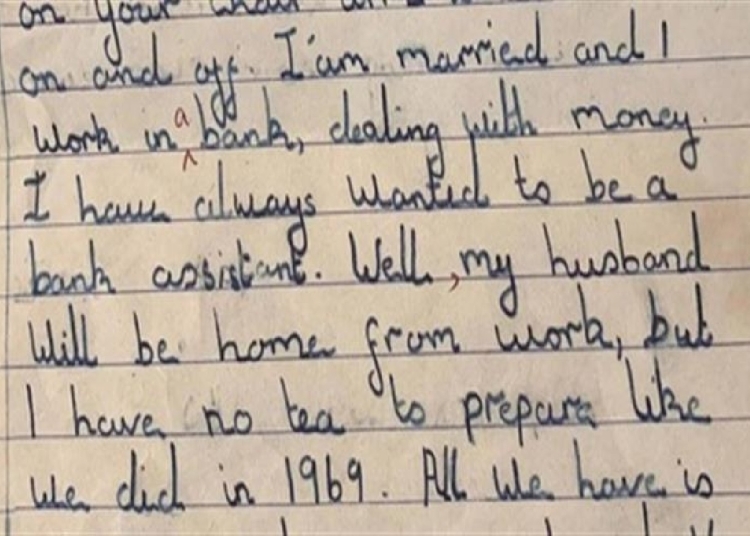 on your
on and off. I'am married and I
work in a bank, dealing with money.
I have always wanted to be a
bank assistant. Well, my husband
Will be home from work, but
I have no tea to prepare like
we did in 1969. All we have is